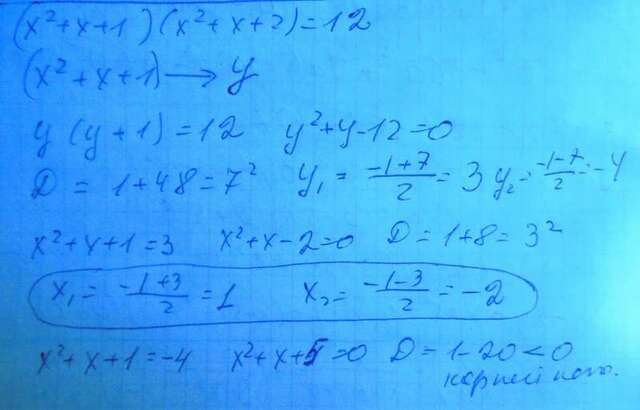 (x²+x+1)(x²+x+2)=12
(x²+x+1)→y
y(y+1)=12 y²+y-12=0
D=1+48=7² y₁=\frac{-1+7}{2}=3 y₂=\frac{-1-7}{2}=-4
x²+x+1=3 x²+x-2=0 D=1+8=3²
x₁=\frac{-1+3}{2}=1 x₂=\frac{-1-3}{2}=-2
x²+x+1=-4 x²+x+5=0 D=1-20<0
корней нет.